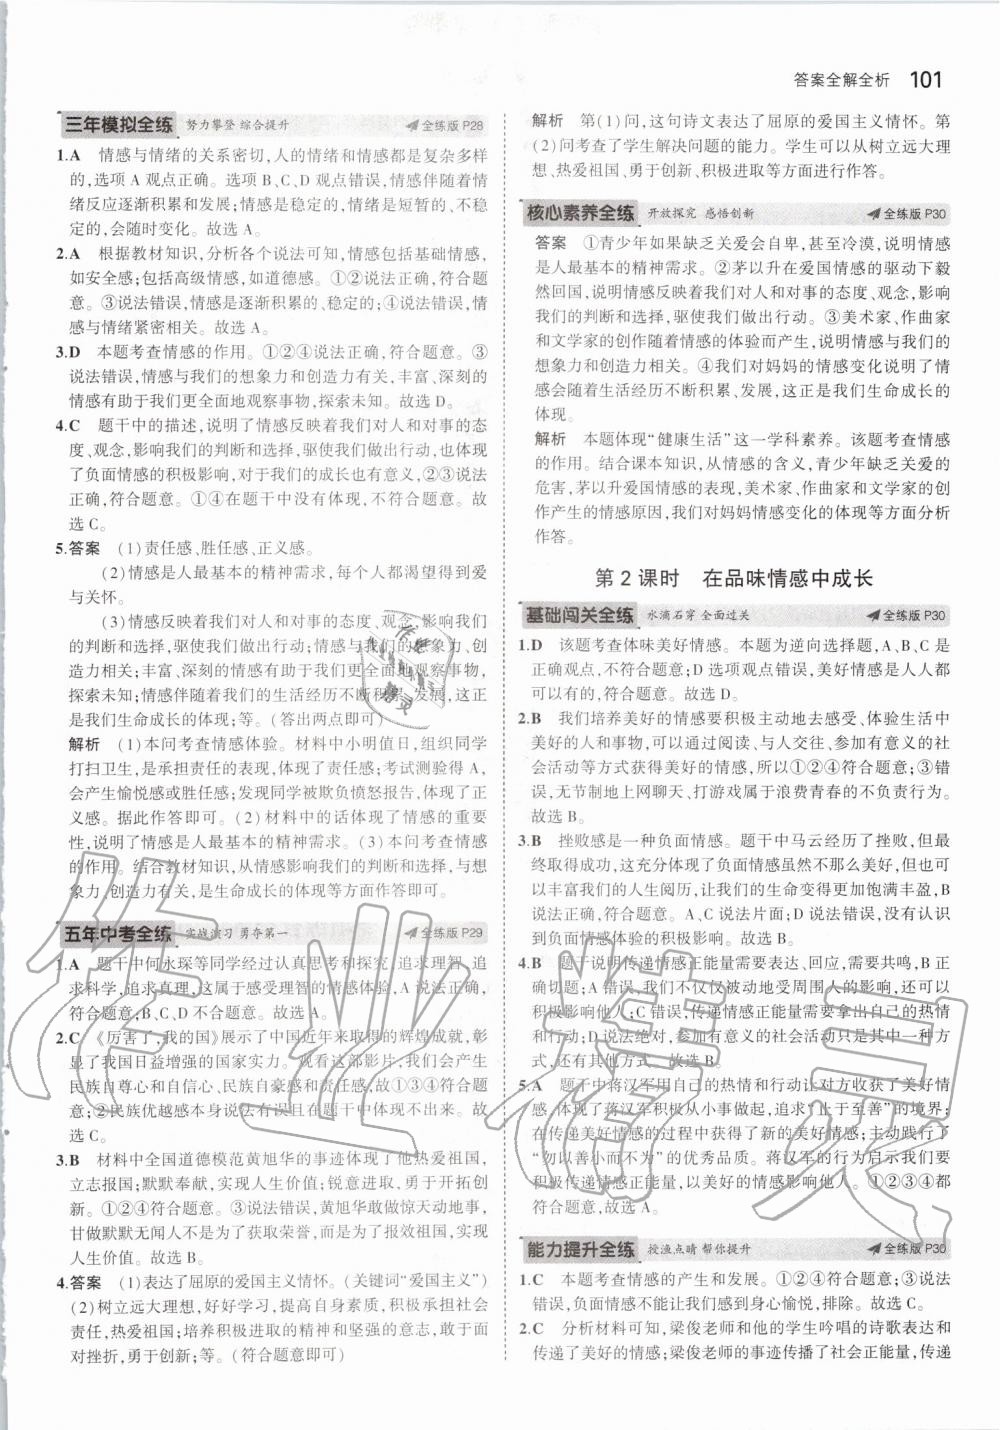 答案全解全析 101
三年模拟全练 努力攀登 综合提升 全练版 P28
1.A 情感与情绪的关系密切,人的情绪和情感都是复杂多样
的,选项 A 观点正确。选项 B、C、D 观点错误,情感伴随着情
绪反应逐渐积累和发展;情感是稳定的,情绪是短暂的、不稳
定的,会随时变化。故选 A。
2.A 根据教材知识,分析各个说法可知,情感包括基础情感,
如安全感;也包括高级情感,如道德感。①②说法正确,符合题
意。③说法错误,情感是逐渐积累的、稳定的;④说法错误,情
感与情绪紧密相关。故选 A。
3.D 本题考查情感的作用。①②④说法正确,符合题意。③
说法错误,情感与我们的想象力和创造力有关,丰富、深刻的
情感有助于我们更全面地观察事物,探索未知。故选 D。
4.C 题干中的描述,说明了情感反映着我们对人和对事的态
度、观念,影响我们的判断和选择,驱使我们做出行动,也体现
了负面情感的积极影响,对于我们的成长也有意义,②③说法
正确,符合题意。①④在题干中没有体现,不符合题意。故
选 C。
5.答案 (1)责任感、胜任感、正义感。
(2)情感是人最基本的精神需求,每个人都渴望得到关爱
与关怀。
(3)情感反映着我们对人和对事的态度、观念,影响我们
的判断和选择,驱使我们做出行动;情感与我们的想象力、创
造力相关;丰富、深刻的情感有助于我们更全面地观察事物,
探索未知;情感伴随着我们的生活经历不断积累、发展,这正
是我们生命成长的体现;等。(答出两点即可)
解析 (1)本问考查情感体验。材料中小明值日,组织同学
打扫卫生,是承担责任的表现,体现了责任感;考试测验得 A,
会产生愉悦感或胜任感;发现同学被欺负愤怒报告,体现了正
义感。据此作答即可。(2)材料中的话体现了情感的重要
性,说明了情感是人最基本的精神需求。(3)本问考查情感
的作用。结合教材知识,从情感影响我们的判断和选择,与想
象力、创造力有关,是生命成长的体现等方面作答即可。
五年中考全练 实战演习 勇夺第一 全练版 P29
1.A 题干中何永琛等同学经过认真思考和探究,追求理智,追
求科学,追求真理,这属于感受理智的情感体验,A 说法正确,
符合题意;B、C、D 不合题意。故选 A。
2.C 《厉害了,我的国》展示了中国近年来取得的辉煌成就,彰
显了我国日益增强的国家实力。观看这部影片,我们会产生
民族自尊心和自信心、民族自豪感和责任感,故①③④符合题
意;②民族优越感本身说法有误且在题干中体现不出来。故
选 C。
3.B 材料中全国道德模范黄旭华的事迹体现了他热爱祖国,
立志报国;默默奉献,实现人生价值;锐意进取,勇于开拓创
新。①②④符合题意。③说法错误,黄旭华敢做惊天动地事,
甘做默默无闻人不是为了获取荣誉,而是为了报效祖国,实现
人生价值。故选 B。
4.答案 (1)表达了屈原的爱国主义情怀。(关键词“爱国主义”)
(2)树立远大理想,好好学习,提高自身素质,积极承担社会
责任,热爱祖国;培养积极进取的精神和坚强的意志,敢于面
对挫折,勇于创新;等。(符合题意即可)
解析 第(1)问,这句诗文表达了屈原的爱国主义情怀。第
(2)问考查了学生解决问题的能力。学生可以从树立远大理
想、热爱祖国、勇于创新、积极进取等方面进行作答。
核心素养全练 开放探究 感悟创新 全练版 P30
答案 ①青少年如果缺乏关爱会自卑,甚至冷漠,说明情感
是人最基本的精神需求。②茅以升在爱国情感的驱动下毅
然回国,说明情感反映着我们对人和对事的态度、观念,影响
我们的判断和选择,驱使我们做出行动。③美术家、作曲家
和文学家的创作随着情感的体验而产生,说明情感与我们的
想象力和创造力相关。④我们对妈妈的情感变化说明了情
感会随着生活经历不断积累、发展,这正是我们生命成长的
体现。
解析 本题体现“健康生活”这一学科素养。该题考查情感
的作用。结合课本知识,从情感的含义,青少年缺乏关爱的
危害,茅以升爱国情感的表现,美术家、作曲家和文学家的创
作产生的情感原因,我们对妈妈情感变化的体现等方面分析
作答。
第 2 课时 在品味情感中成长
基础闯关全练 水滴石穿 全面过关 全练版 P30
1.D 该题考查体味美好情感。本题为逆向选择题,A、B、C 是
正确观点,不符合题意;D 选项观点错误,美好情感是人人都
可以有的,符合题意。故选 D。
2.B 我们培养美好的情感要积极主动地去感受、体验生活中
美好的人和事物,可以通过阅读、与人交往、参加有意义的社
会活动等方式获得美好的情感,所以①②④符合题意;③错
误,无节制地上网聊天、打游戏属于浪费青春的不负责行为。
故选 B。
3.B 挫败感是一种负面情感。题干中马云经历了挫败,但最
终取得成功,这充分体现了负面情感虽然不那么美好,但也可
以丰富我们的人生阅历,让我们的生命变得更加饱满丰盈,B
说法正确,符合题意;A、C 说法片面;D 说法错误,没有认识
到负面情感的积极影响。故选 B。
4.B 题干说明传递情感正能量需要表达、回应,需要共鸣,B 正
确切题;A 错误,我们不仅仅被动地受周围人的影响,还可以
积极影响他人;C 错误,传递情感正能量需要付出自己的热
情和行动;D 说法绝对,参加有意义的社会活动只是其中一种方
式,还有其他方式。故选 B。
5.A 题干中蒋汉军用自己的热情和行动让对方收获了美好情
感,体现了蒋汉军积极从小事做起,追求“止于至善”的境界;
在传递美好情感的过程中获得了新的美好情感;主动践行了
“勿以善小而不为”的优秀品质。蒋汉军的行为启示我们要
积极传递情感正能量,以美好的情感影响他人。①②③④都
符合题意。故选 A。
能力提升全练 授渔点睛 帮你提升 全练版 P30
1.C 本题考查情感的产生和发展。①②④符合题意;③说法
错误,负面情感不能让我们感到身心愉悦,排除。故选 C。
2.C 分析材料可知,梁俊老师和他的学生吟唱的诗歌表达和
传递了美好的情感;梁俊老师的事迹传播了社会正能量,传递
作业精灵